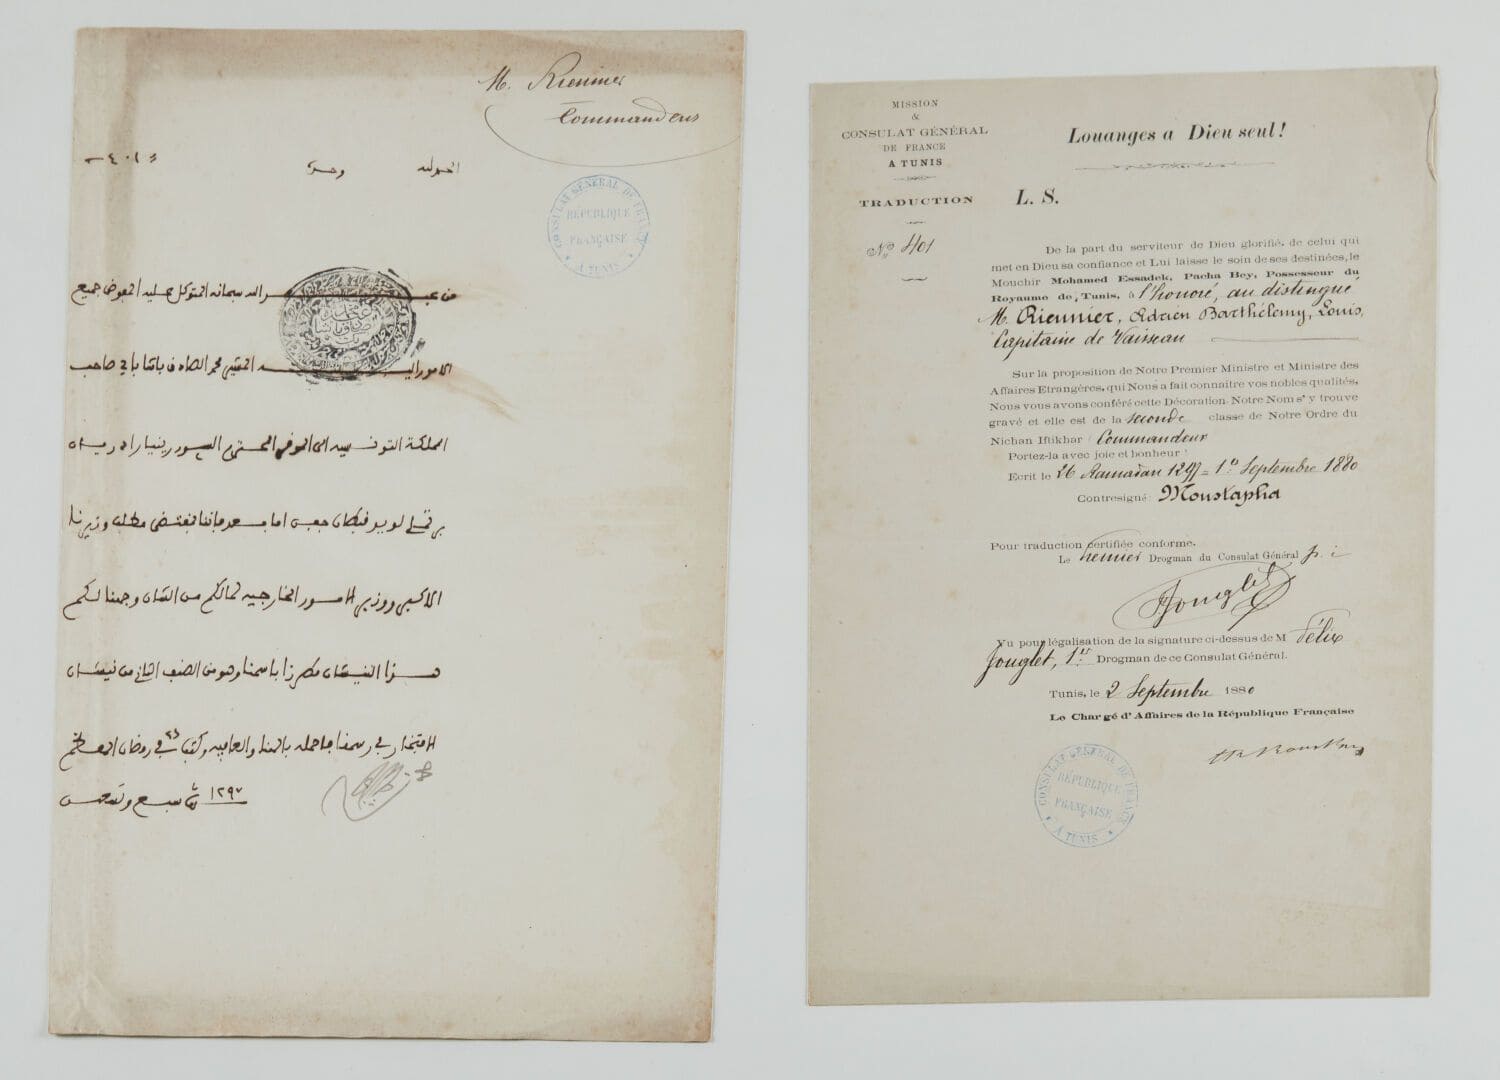 M. Rieunier
Commandeur
٤٠١
الحمد لله وحده
CONSULAT GÉNÉRAL DE FRANCE
RÉPUBLIQUE
FRANÇAISE
A TUNIS
من عبد الله سبحانه المتوكل عليه المفوض جميع
الامور اليه المشير محمد الصادق باشا باي صاحب
المملكة التونسية الى الموقر المحترم السيور رينيار ادريان
برتملي لويز قبطان اما بعد فاننا بمقتضى مطلب وزيرنا
الاكبر ووزير الامور الخارجية لما لكم من الشان وجهنا لكم
هذا النيشان مطرزا باسمنا وهو من الصنف الثاني من نيشان
الافتخار في رسمنا فاحمله بالهنا والعافية وكتب في ٢٦ رمضان المعظم
سنة ١٢٩٧ سبع وتسعين
MISSION
&
CONSULAT GÉNÉRAL
DE FRANCE
A TUNIS
TRADUCTION
No 401
Louanges a Dieu seul!
L. S.
De la part du serviteur de Dieu glorifié, de celui qui
met en Dieu sa confiance et Lui laisse le soin de ses destinées, le
Mouchir Mohamed Essadek, Pacha Bey, Possesseur du
Royaume de Tunis, à l'honoré, au distingué
M. Rieunier, Adrien Barthélemy, Louis,
Capitaine de Vaisseau
Sur la proposition de Notre Premier Ministre et Ministre des
Affaires Etrangères, qui Nous a fait connaitre vos nobles qualités,
Nous vous avons conféré cette Décoration. Notre Nom s'y trouve
gravé et elle est de la seconde classe de Notre Ordre du
Nichan Iftikhar (Commandeur
Portez-la avec joie et bonheur!
Ecrit le 26 Ramadan 1297 = 1er Septembre 1880
Contresigné: Moustapha
Pour traduction certifiée conforme.
Le Premier Drogman du Consulat Général p. i
F. Jouglet
Vu pour légalisation de la signature ci-dessus de M Félix
Jouglet, 1er Drogman de ce Consulat Général.
Tunis, le 2 Septembre 1880
Le Chargé d'Affaires de la République Française
CONSULAT GÉNÉRAL DE FRANCE
RÉPUBLIQUE
FRANÇAISE
A TUNIS